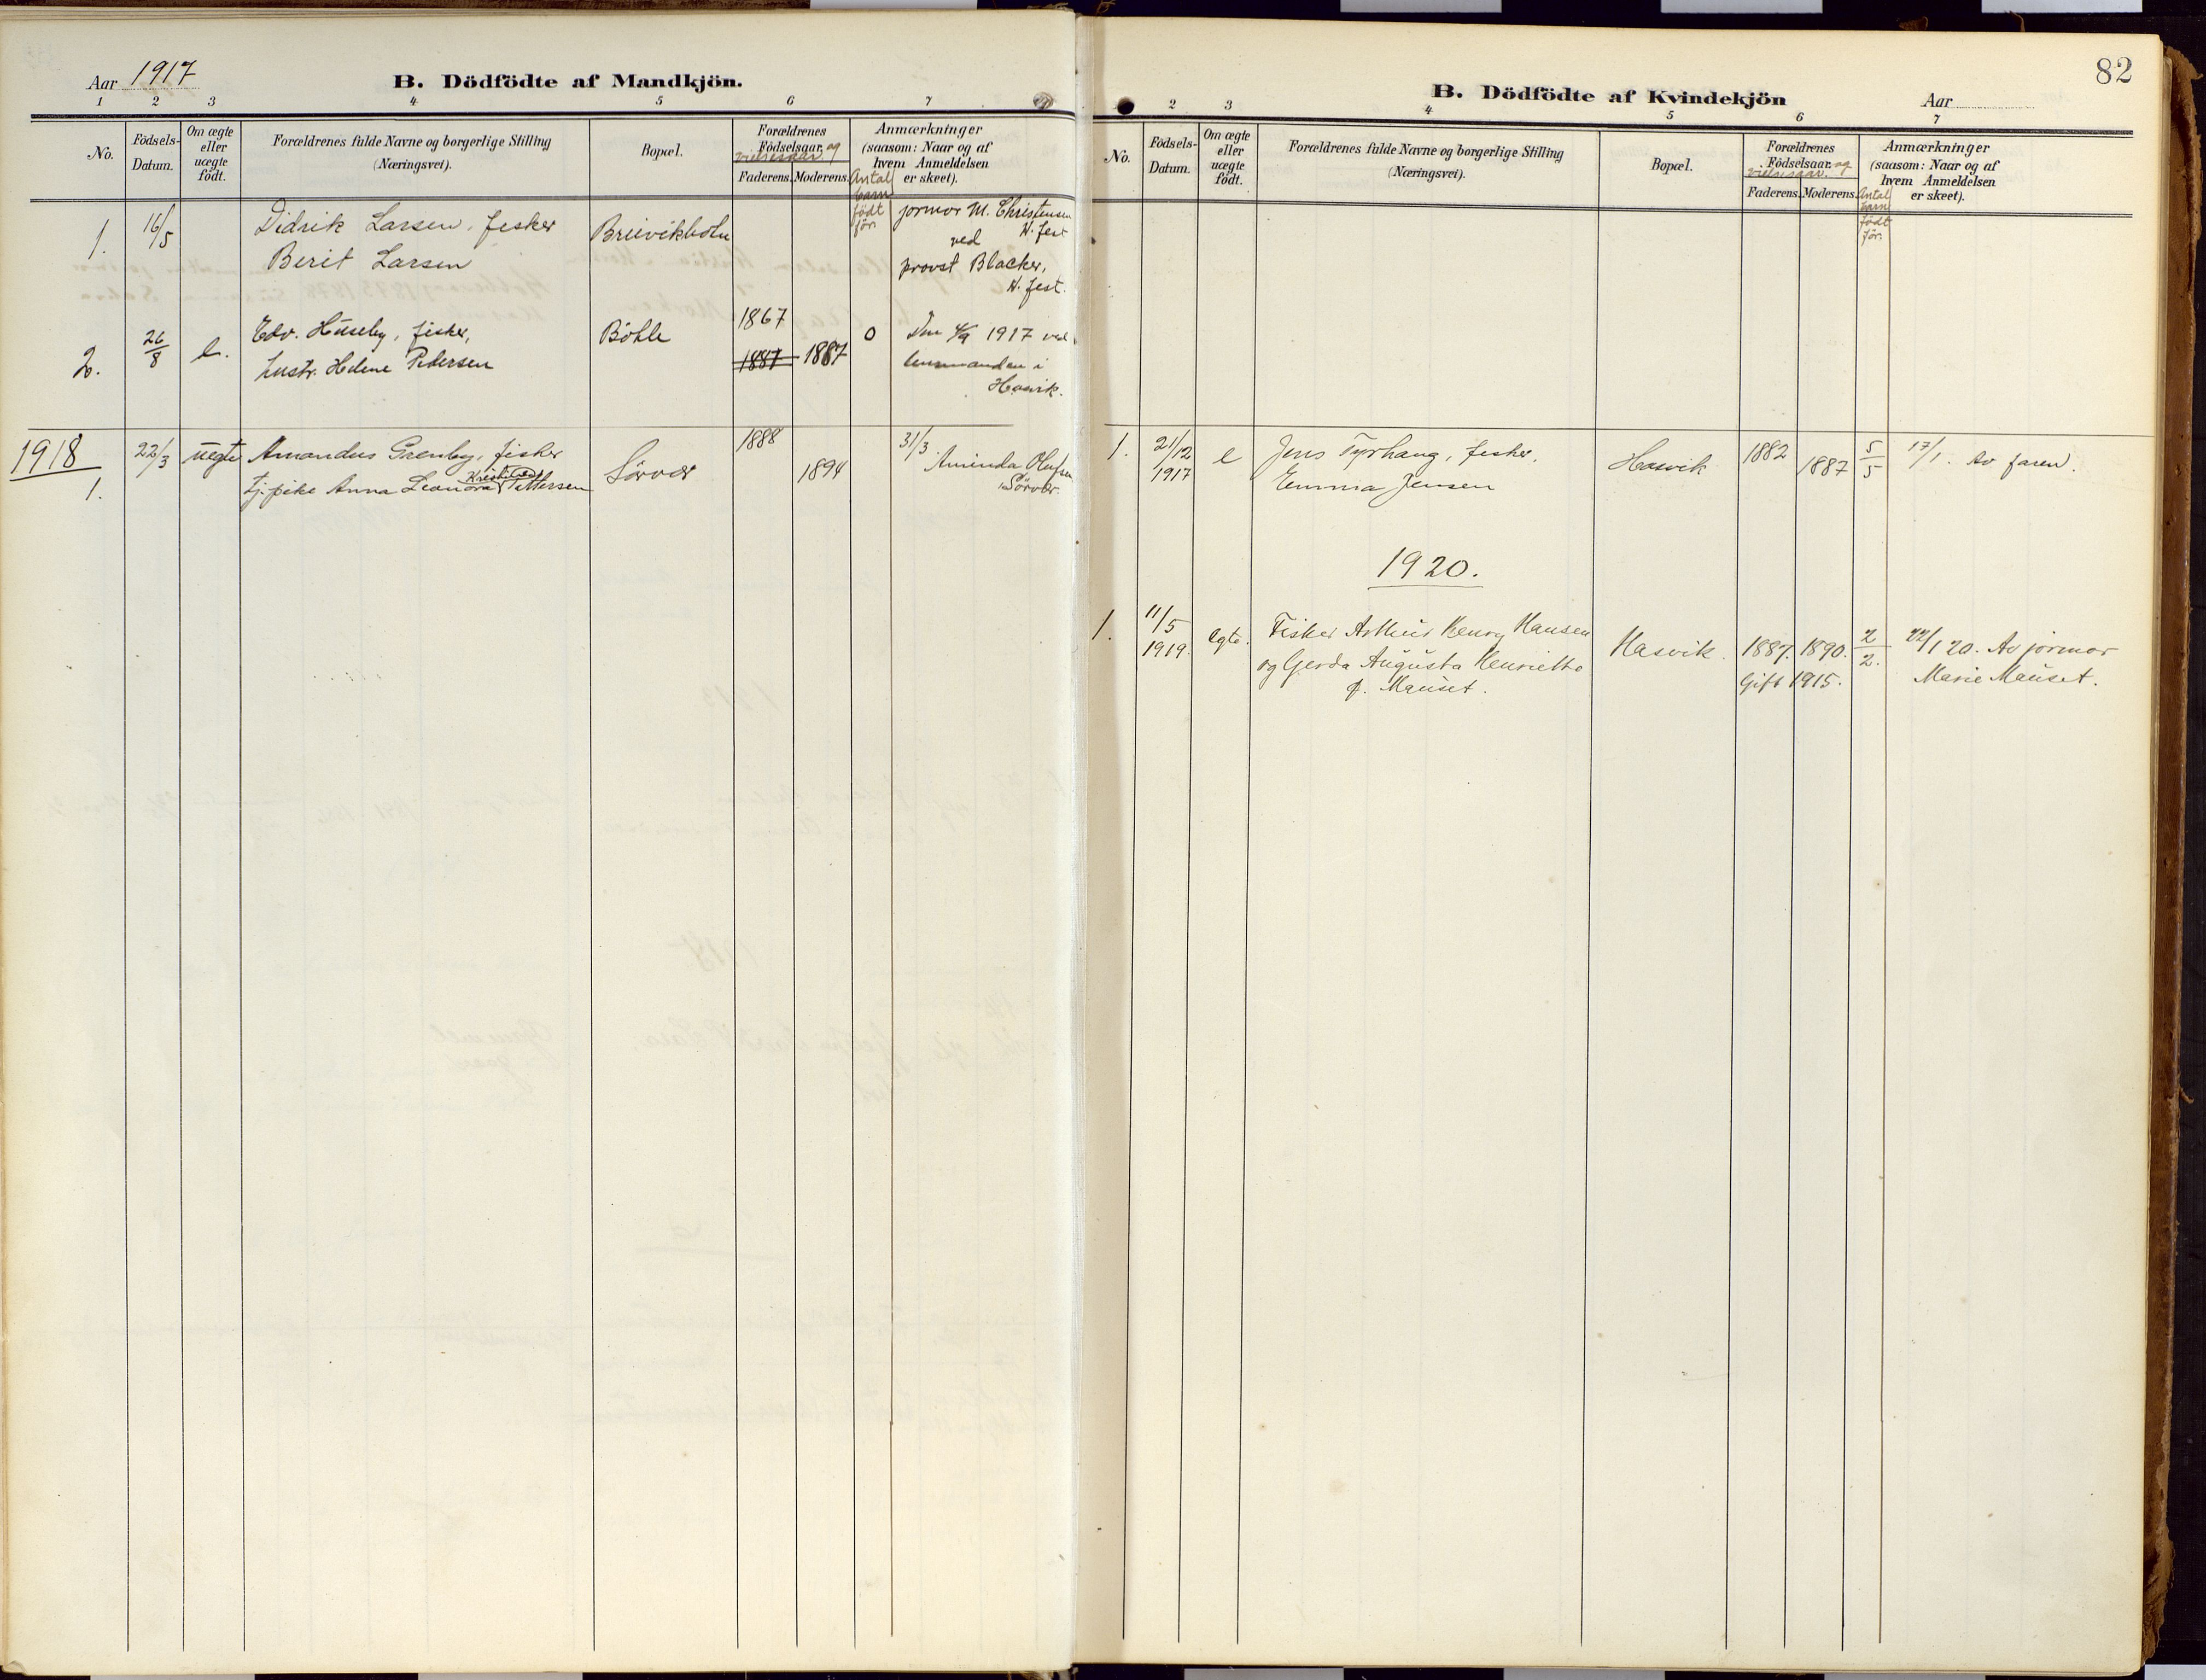 Aar 1917
B. Dödfödte af Mandkjön.
1 2 3 4 5 6 7
No.
Födsels-
Datum.
Om ægte
eller
uægte
födt.
Forældrenes fulde Navne og borgerlige Stilling
(Næringsvei).
Bopæl.
Forældrenes
Födselsaar. og
vielsesaar.
Faderens. Moderens.
Antal
barn
födt
før.
Anmærkninger
(saasom: Naar og af
hvem Anmeldelsen
er skeet).
1. 16/5 Didrik Larsen, fisker
Berit Larsen
Breivikbotn
jormor M. Christensen
H. fest
ved
provst Blacker,
H. fest.
2. 26/8 e. Edv. Huseby, fisker,
hustr. Helene Pedersen
Böhle
1867
1887 1887
0
Den 4/9 1917 ved
lensmanden i
Hasvik.
1918
1. 22/3 uegte Amandus Grenby, fisker
tj. pike Anna Leonora Pettersen
Sörvær
1888
1894
31/3
Aminda Olufsen
Sörvær.
82
B. Dödfödte af Kvindekjön
Aar
2 3 4 5 6 7
No.
Födsels-
Datum.
Om ægte
eller
uægte
födt.
Forældrenes fulde Navne og borgerlige Stilling
(Næringsvei).
Bopæl.
Forældrenes
Födselsaar. og
vielsesaar.
Faderens. Moderens.
Antal
barn
födt
før.
Anmærkninger
(saasom: Naar og af
hvem Anmeldelsen
er skeet).
1. 21/12 1917 e Jens Tyrhaug, fisker,
Emma Jensen
Hasvik
1882
1887
5/5
17/1. Av faren.
1920.
1. 11/5 1919. Egte. Fisker Arthur Henry Hansen
og Gerda Augusta Henriette
f. Mauset.
Hasvik.
1887. 1890.
Gift 1915.
2/2.
22/1 20. Av jormor
Marie Mauset.